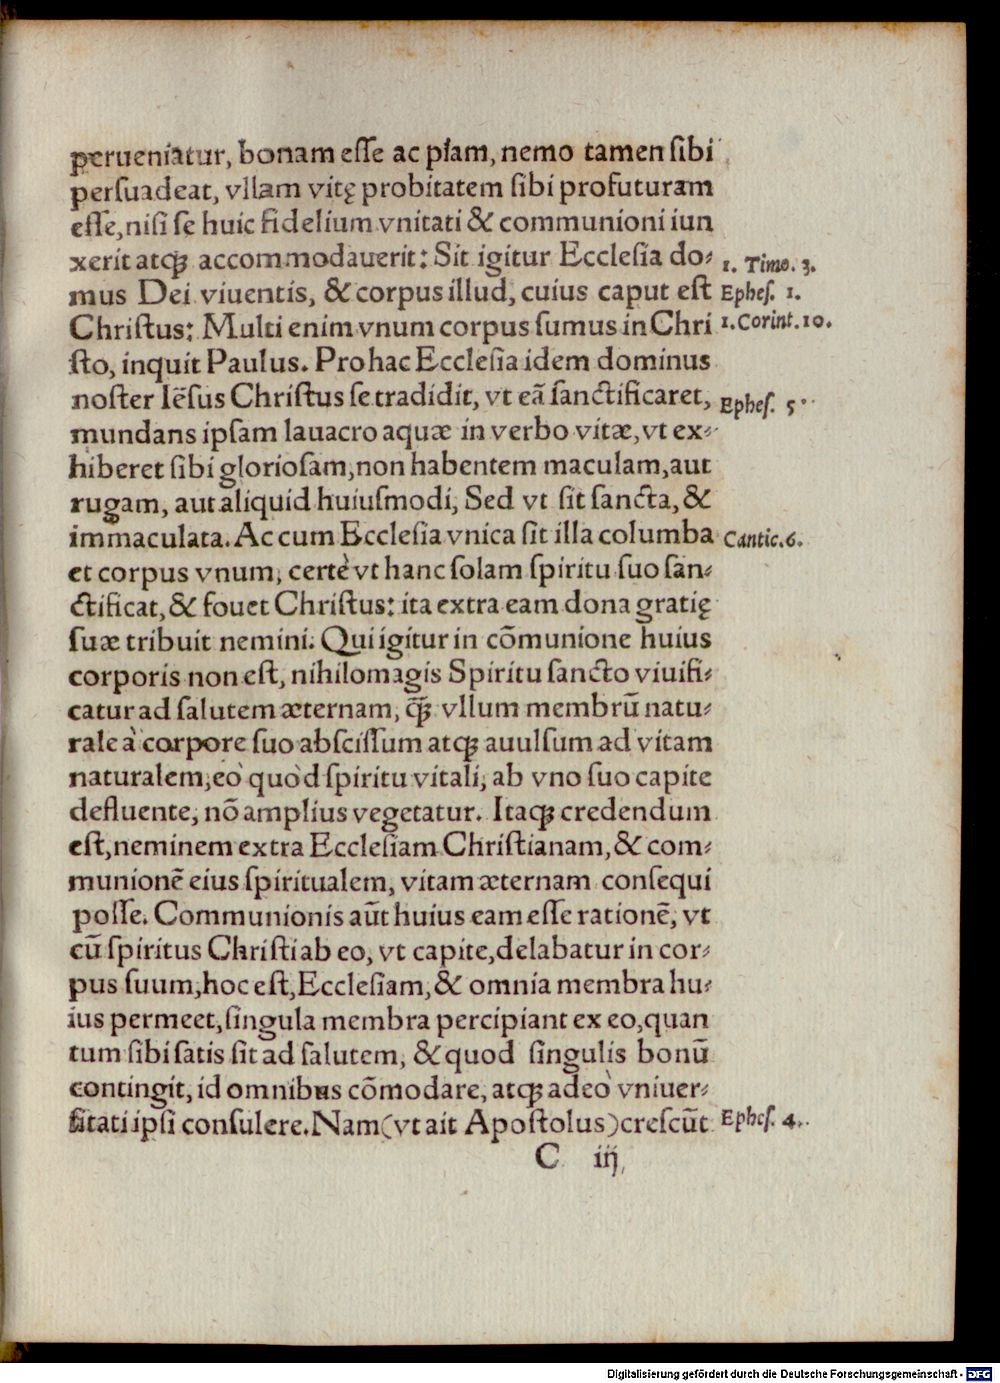 perueniatur, bonam eſſe ac piam, nemo tamen ſibi
perſuadeat, vllam vitę probitatem ſibi profuturam
eſſe, niſi ſe huic fidelium vnitati & communioni iun
xerit atqꝫ accommodauerit: Sit igitur Eccleſia do⸗ 1. Timo. 3.
mus Dei viuentis, & corpus illud, cuius caput eſt Epheſ. 1.
Chriſtus: Multi enim vnum corpus ſumus in Chri 1. Corint. 10.
ſto, inquit Paulus. Pro hac Eccleſia idem dominus
noſter Iēſus Chriſtus ſe tradidit, vt eā ſanctificaret, Epheſ. 5.
mundans ipſam lauacro aquæ in verbo vitæ, vt ex⸗
hiberet ſibi glorioſam, non habentem maculam, aut
rugam, aut aliquid huiuſmodi, Sed vt ſit ſancta, &
immaculata. Ac cum Eccleſia vnica ſit illa columba Cantic. 6.
et corpus vnum, certè vt hanc ſolam ſpiritu ſuo ſan⸗
ctificat, & fouet Chriſtus: ita extra eam dona gratię
ſuæ tribuit nemini. Qui igitur in cōmunione huius
corporis non eſt, nihilomagis Spiritu ſancto viuifi⸗
catur ad ſalutem æternam, q̄ꝫ vllum membrū natu⸗
rale à corpore ſuo abſciſſum atqꝫ auulſum ad vitam
naturalem, eò quòd ſpiritu vitali, ab vno ſuo capite
defluente, nō amplius vegetatur. Itaqꝫ credendum
eſt, neminem extra Eccleſiam Chriſtianam, & com⸗
munionē eius ſpiritualem, vitam æternam conſequi
poſſe. Communionis aūt huius eam eſſe rationē, vt
cū ſpiritus Chriſti ab eo, vt capite, delabatur in cor⸗
pus ſuum, hoc eſt, Eccleſiam, & omnia membra hu⸗
ius permeet, ſingula membra percipiant ex eo, quan
tum ſibi ſatis ſit ad ſalutem, & quod ſingulis bonū
contingit, id omnibus cōmodare, atqꝫ adeò vniuer⸗
ſitati ipſi conſulere. Nam (vt ait Apoſtolus) creſcūt Epheſ. 4.
C iij
Digitalisierung gefördert durch die Deutsche Forschungsgemeinschaft - DFG